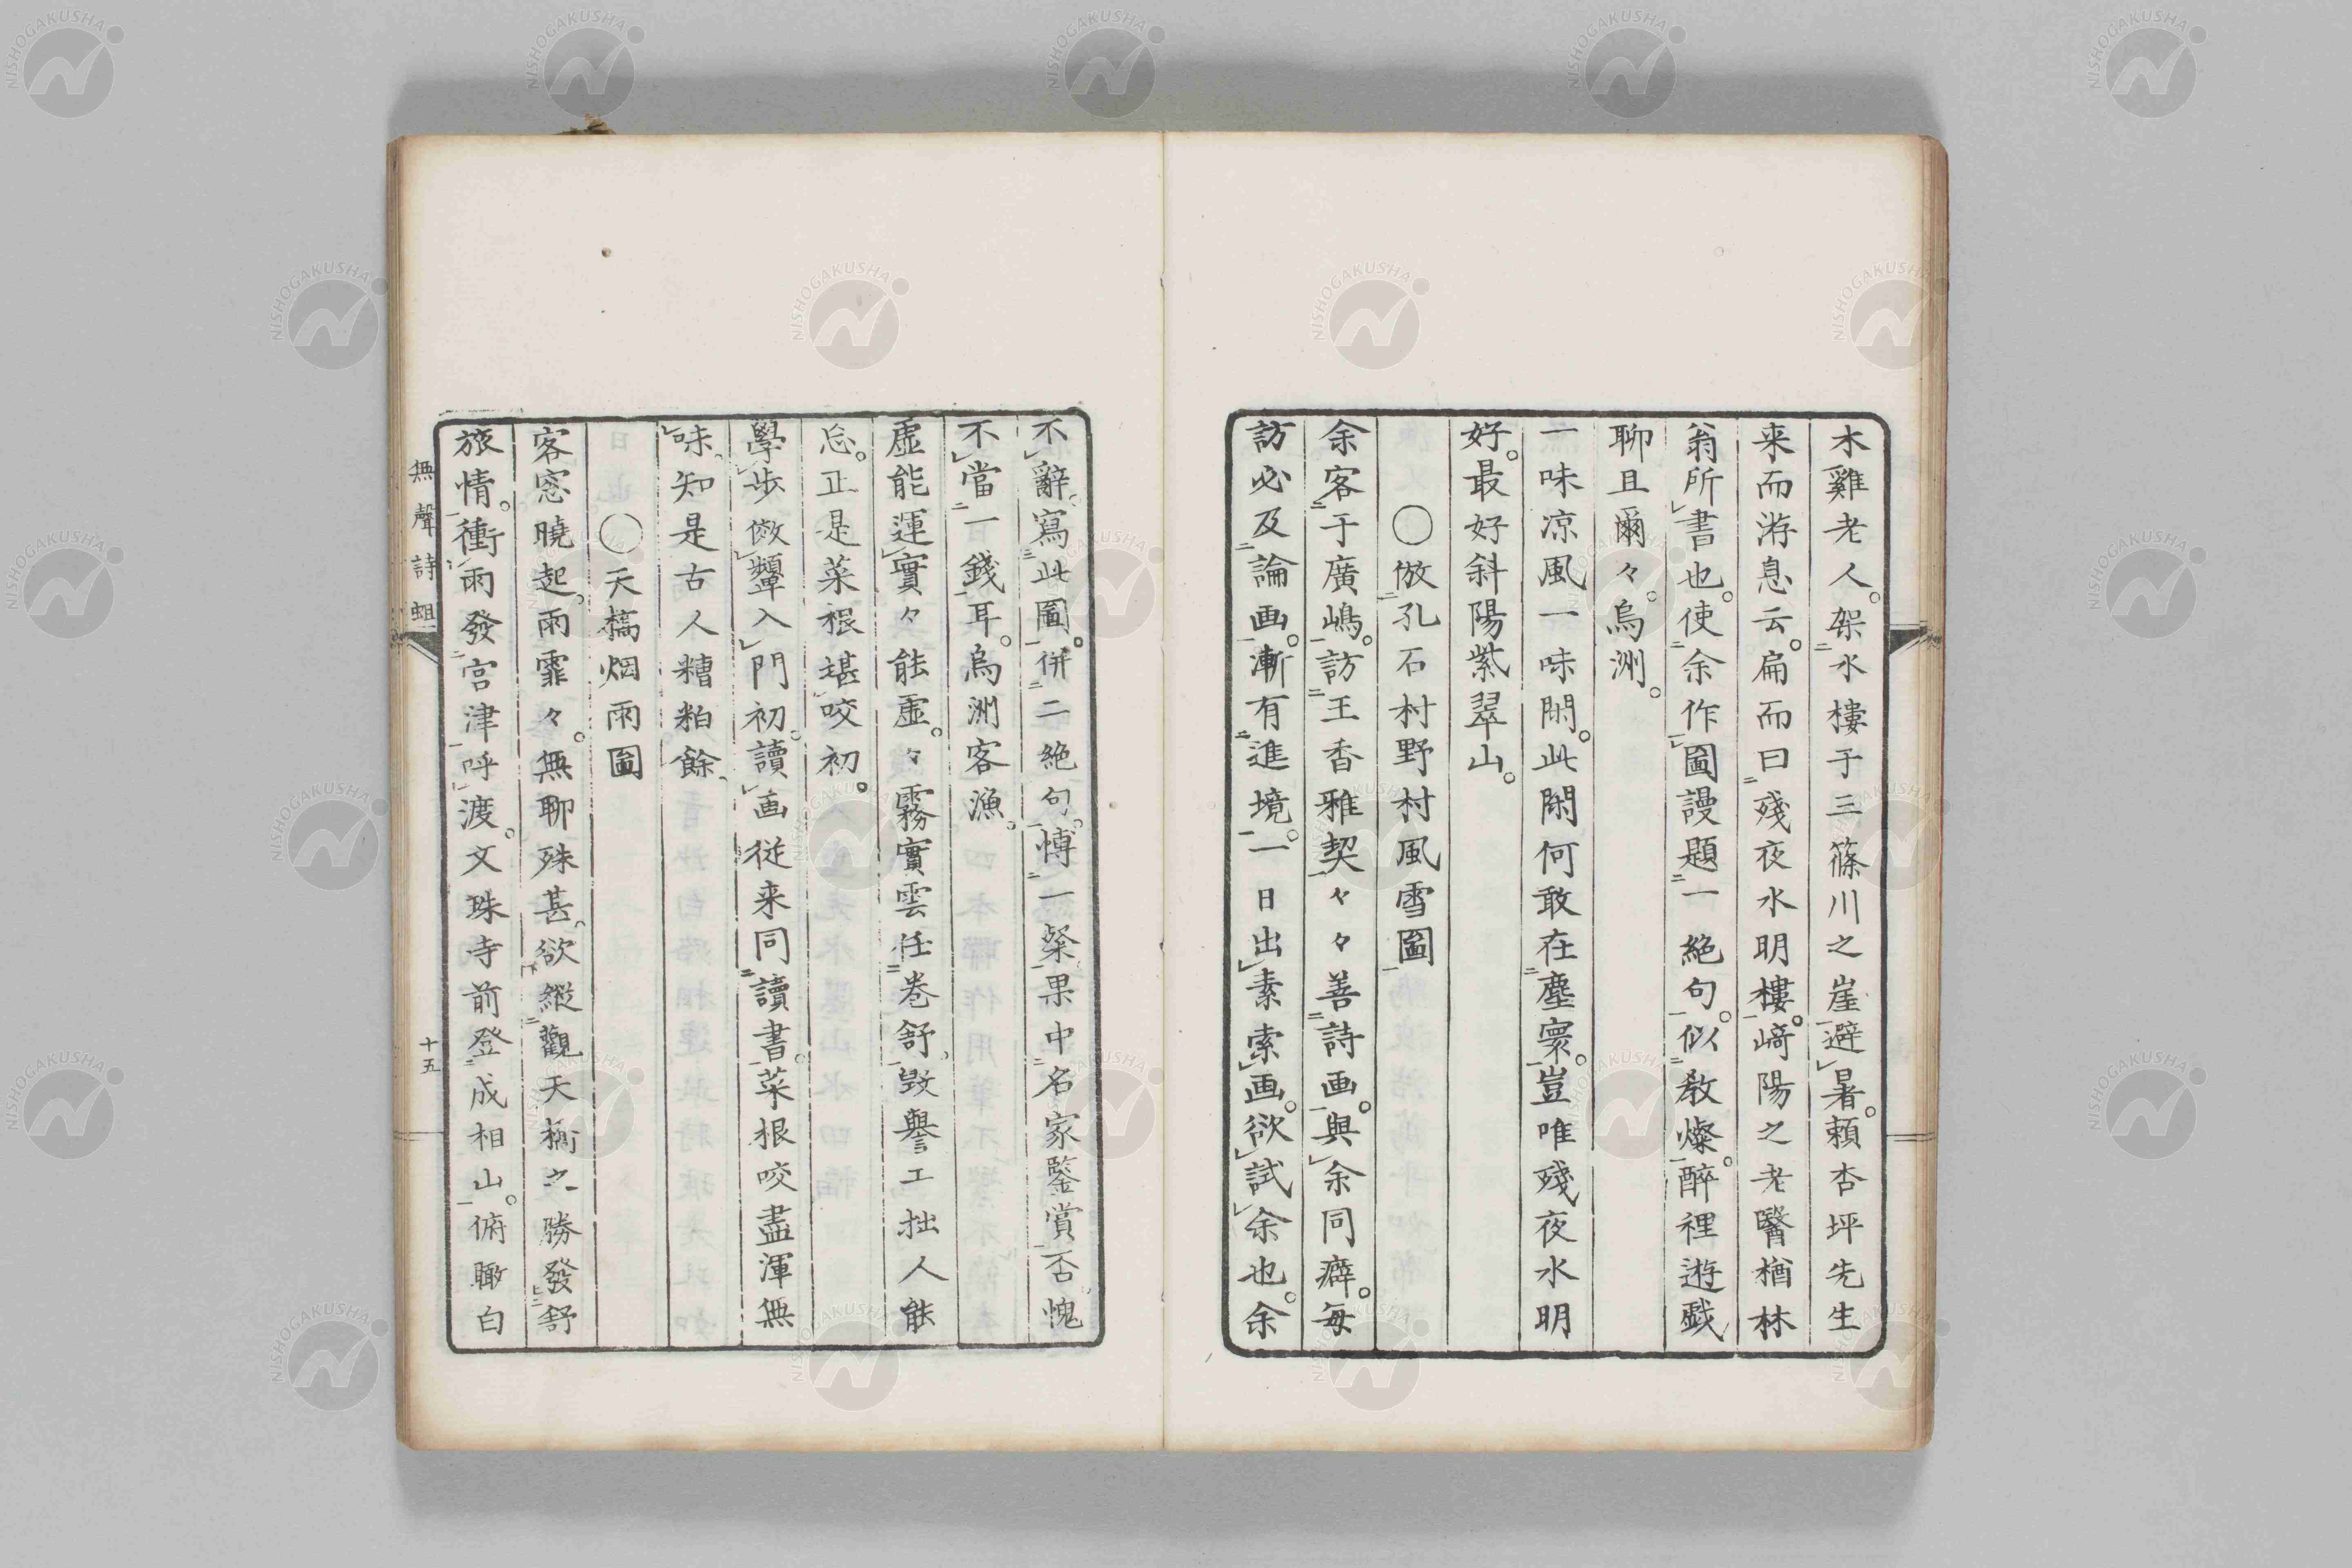 木雞老人。架水樓于三篠川之崖避暑。頼杏坪先生
来而游息云。扁而曰殘夜水明樓。﨑陽之老醫楢林
翁所書也。使余作圖謾題一絶句。似教燦。醉裡遊戯
聊且爾々。烏洲。
一味凉風一味閑。此閑何敢在塵寰。豈唯殘夜水明
好。最好斜陽紫翠山。
○倣孔石村野村風雪圖
余客于廣嶋。訪王香雅契々々善詩画。與余同癖。每
訪必及論画。漸有進境。一日出素索画。欲試余也。余
不辭寫此圖。併二絶句。愽一粲果中名家鑒賞否。愧
不當一錢耳。烏洲客漁。
虚能運實々能虚。々霧實雲任巻舒。毀譽工拙人能
忘。正是菜根堪咬初。
學步傚顰入門初。讀画従来同讀書。菜根咬盡渾無
味。知是古人糟粕餘。
○天橋烟雨圖
客窓曉起。雨霏々。無聊殊甚。欲縱觀天橋之勝發舒
旅情。衝雨發宮津呼渡。文珠寺前登成相山。俯瞰白
無聲詩蛆
十五
NISHOGAKUSHA